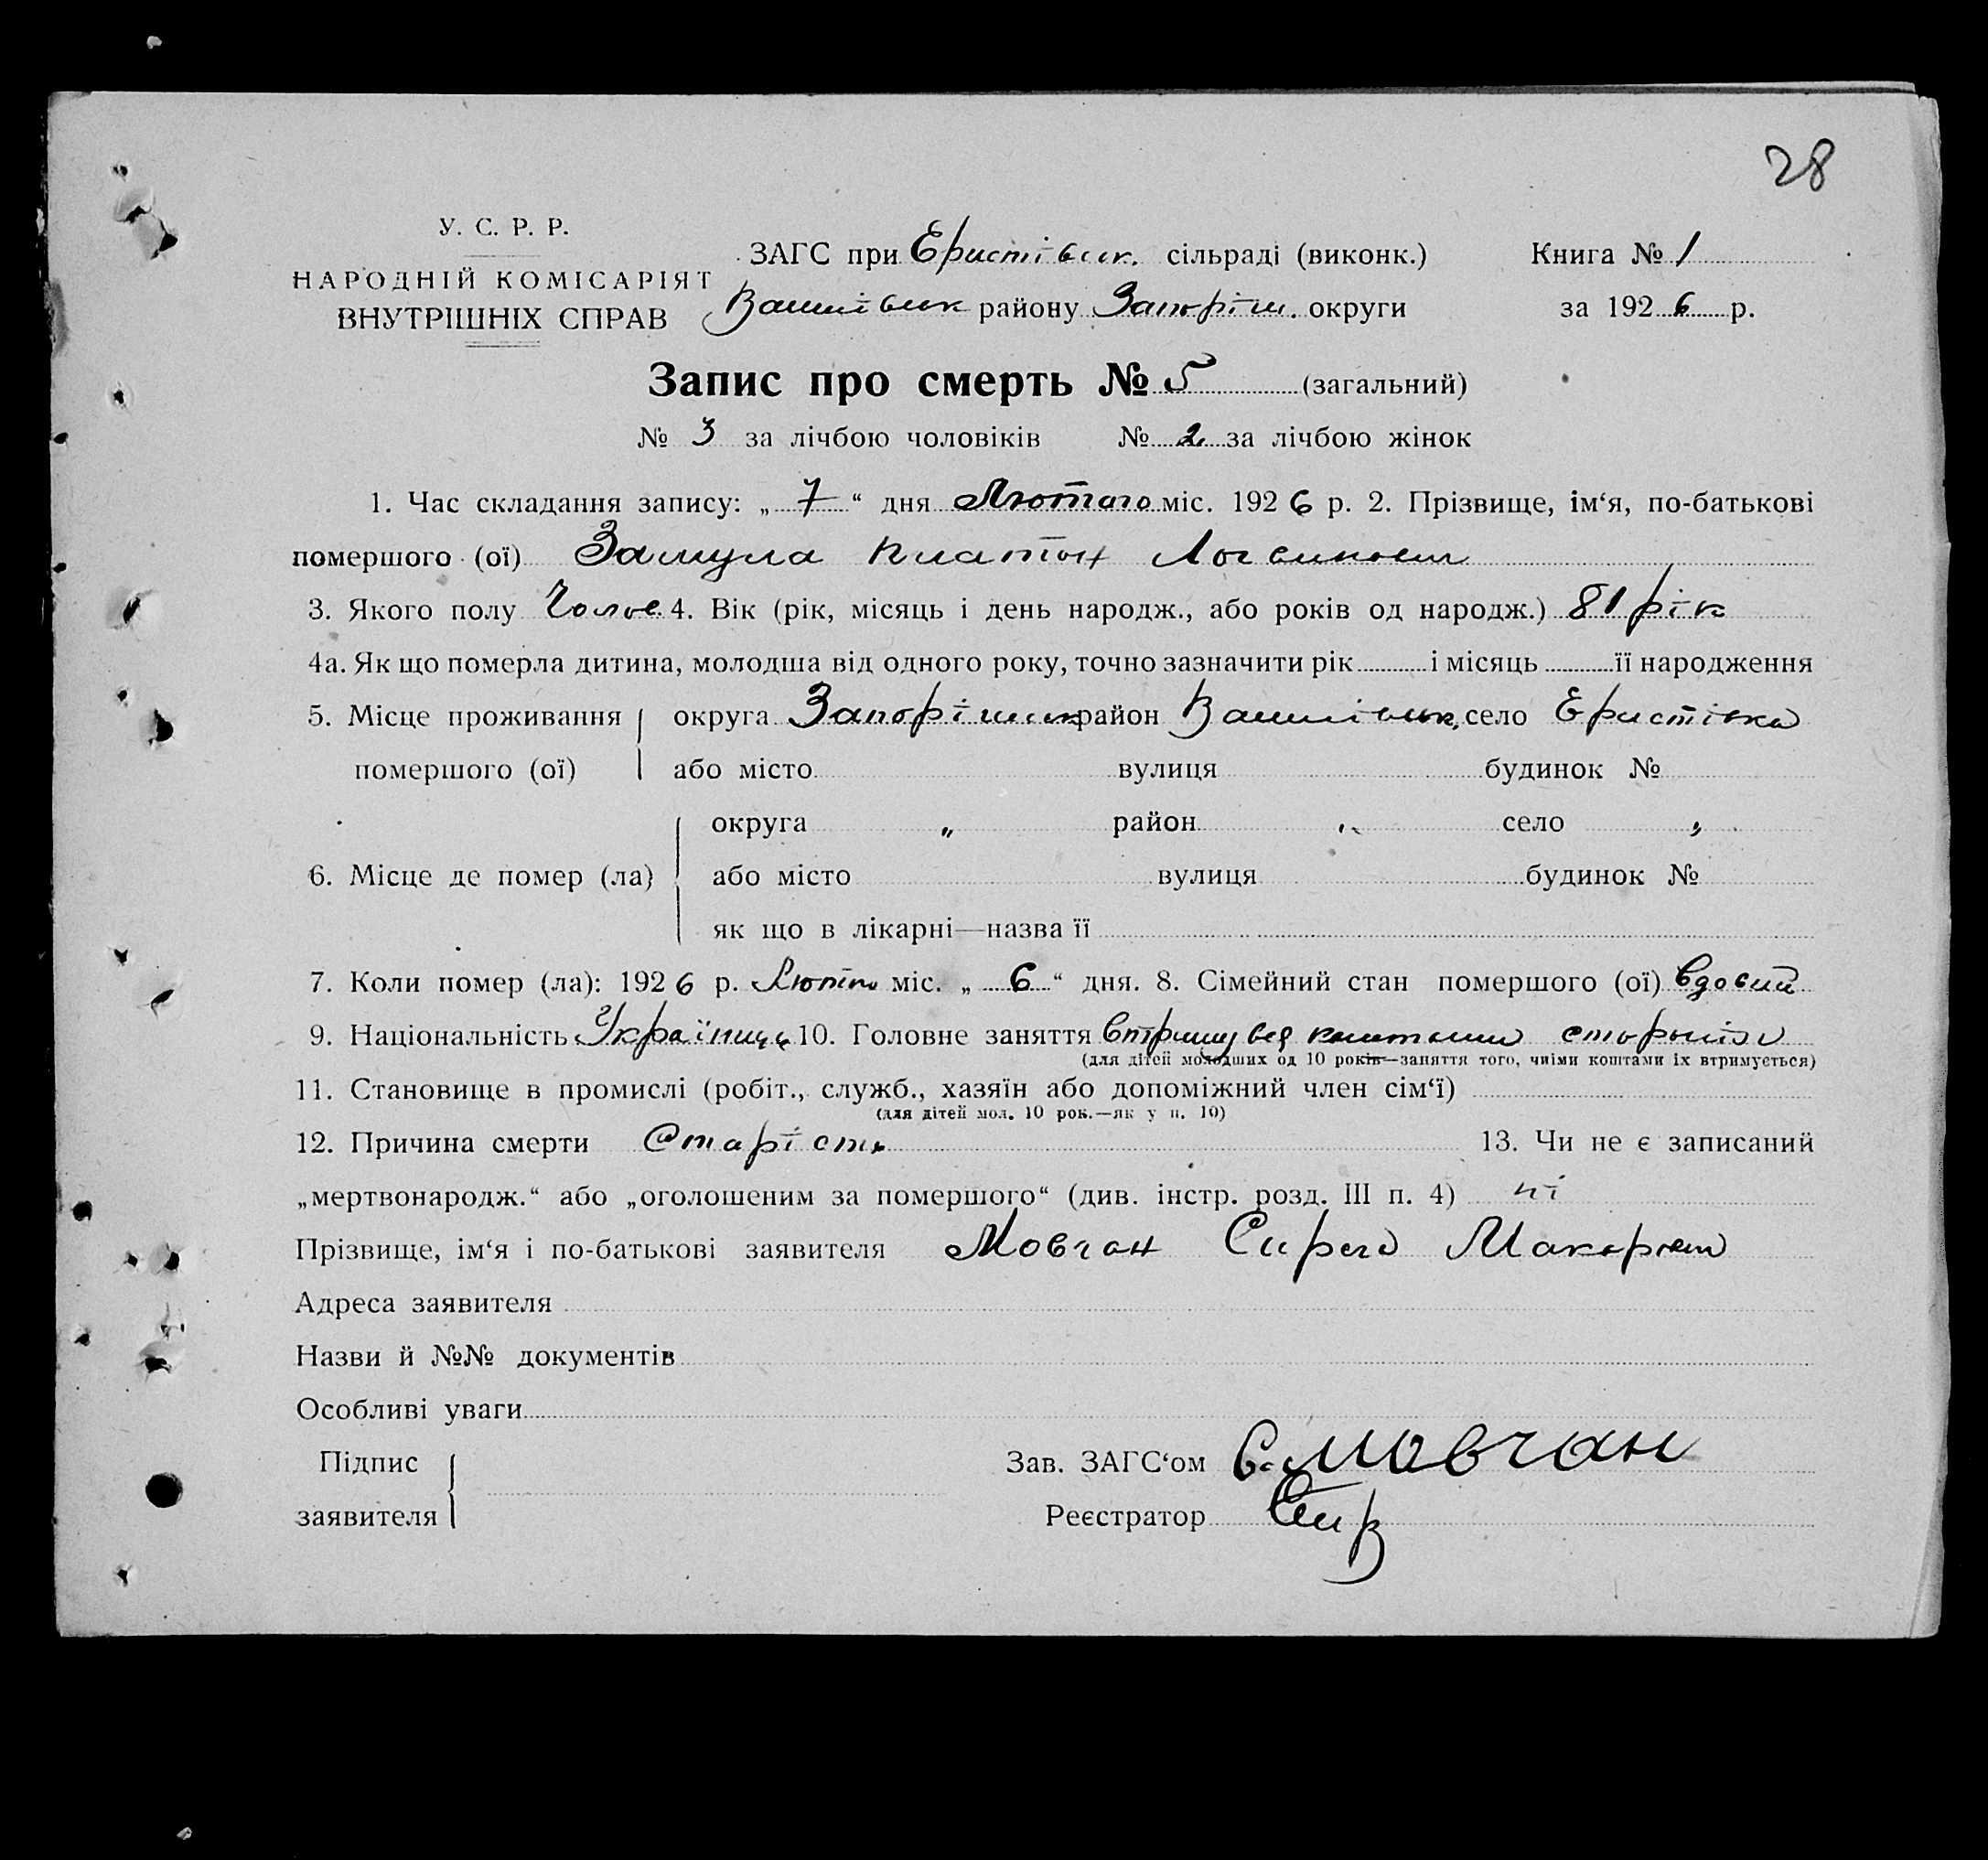 28
У. С. Р. Р.
НАРОДНІЙ КОМІСАРІЯТ
ВНУТРІШНІХ СПРАВ
ЗАГС при Еристівськ. сільраді (виконк.)
Книга № 1
району Запоріш. округи
за 1926 р.
Запис про смерть № 5 (загальний)
№ 3 за лічбою чоловіків № 2 за лічбою жінок
1. Час складання запису: „ 7 “ дня Лютого міс. 1926 р. 2. Прізвище, ім‘я, по-батькові
помершого (ої) Замула Платон Логвинович
3. Якого полу Чолов. 4. Вік (рік, місяць і день народж., або років од народж.) 81 рік
4а. Як що померла дитина, молодша від одного року, точно зазначити рік і місяць її народження
5. Місце проживання округа Запорішськ район село Еристівка
помершого (ої) або місто вулиця будинок №
округа „ район „ село „
6. Місце де помер (ла) або місто вулиця будинок №
як що в лікарні—назва її
7. Коли помер (ла): 1926 р. Лютого міс. „ 6 “ дня. 8. Сімейний стан помершого (ої) вдовий
9. Національність Українець 10. Головне заняття коштами
(для дітей молодших од 10 років—заняття того, чиїми коштами їх втримується)
11. Становище в промислі (робіт., служб., хазяїн або допоміжний член сім‘ї)
(для дітей мол. 10 рок.—як у п. 10)
12. Причина смерти Старість 13. Чи не є записаний
„мертвонародж.“ або „оголошеним за помершого“ (див. інстр. розд. III п. 4) ні
Прізвище, ім‘я і по-батькові заявителя Мовчан Сиргій Макарович
Адреса заявителя
Назви й №№ документів
Особливі уваги
Підпис
заявителя
Зав. ЗАГС‘ом С. Мовчан
Реєстратор